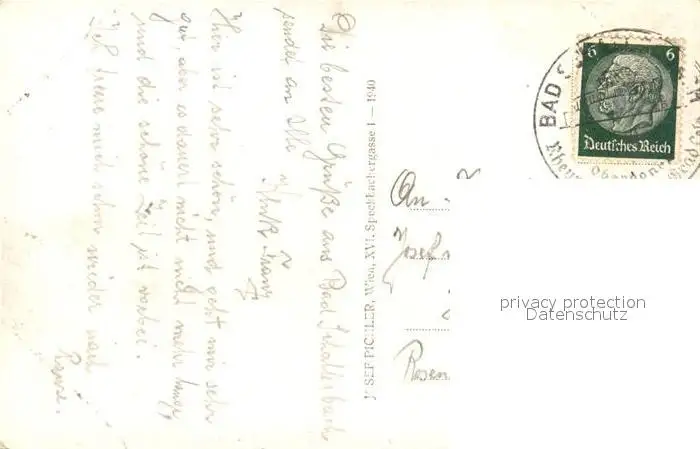 Die besten Grüße aus Bad Schallerbach
sendet an Alle
Hier ist sehr schön, und geht mir sehr
gut, aber es dauert nicht mehr lang
und die schöne Zeit ist vorbei.
Ich freue mich schon wieder nach
JOSEF PICHLER, Wien, XVI. Speckbachergasse 1 — 1940
6 6
Deutsches Reich
BAD
Oberdonau
An
Josef
Rosen
privacy protection
Datenschutz